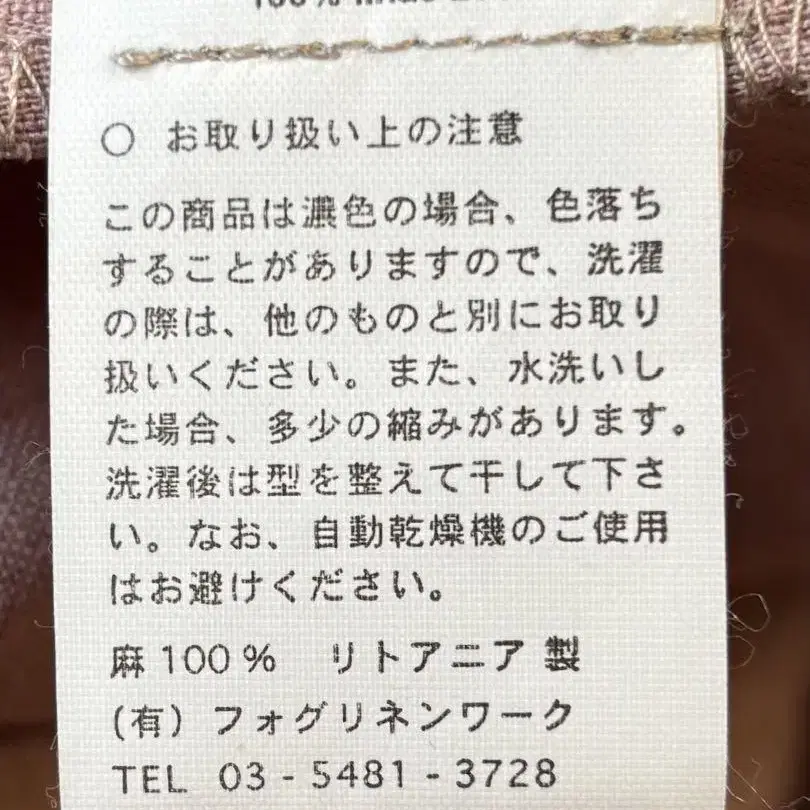 ○ お取り扱い上の注意
この商品は濃色の場合、色落ち
することがありますので、洗濯
の際は、他のものと別にお取り
扱いください。また、水洗いし
た場合、多少の縮みがあります。
洗濯後は型を整えて干して下さ
い。なお、自動乾燥機のご使用
はお避けください。
麻 100 % リトアニア 製
(有) フォグリネンワーク
TEL 03 - 5481 - 3728